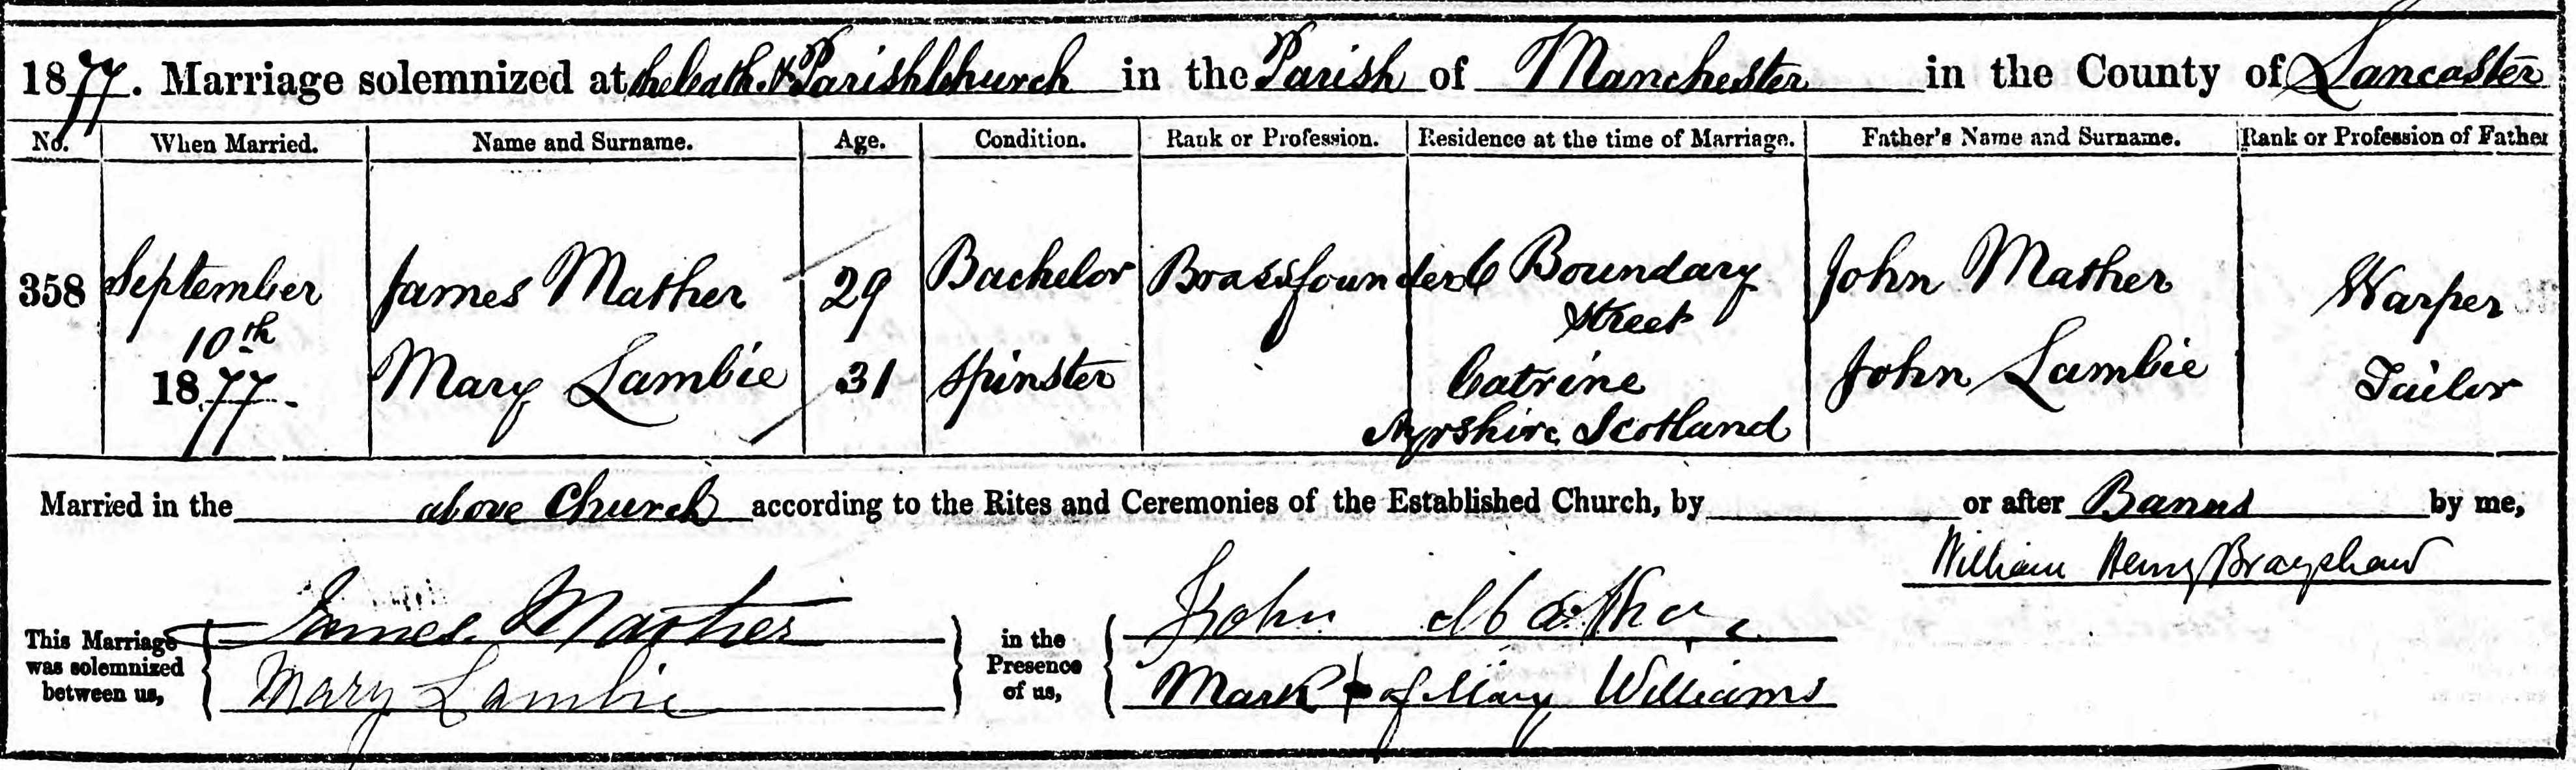 1877. Marriage solemnized at the Cath. & Parish Church in the Parish of Manchester in the County of Lancaster
No. When Married. Name and Surname. Age. Condition. Rank or Profession. Residence at the time of Marriage. Father's Name and Surname. Rank or Profession of Father
358 September 10th 1877. James Mather 29 Bachelor Brassfounder 6 Boundary Street John Mather Warper
Mary Lambie 31 Spinster Catrine Ayrshire Scotland John Lambie Tailor
Married in the above Church according to the Rites and Ceremonies of the Established Church, by or after Banns by me,
William Henry Brayshaw
This Marriage was solemnized between us, James Mather Mary Lambie in the Presence of us, John Mather Mark of Mary Williams